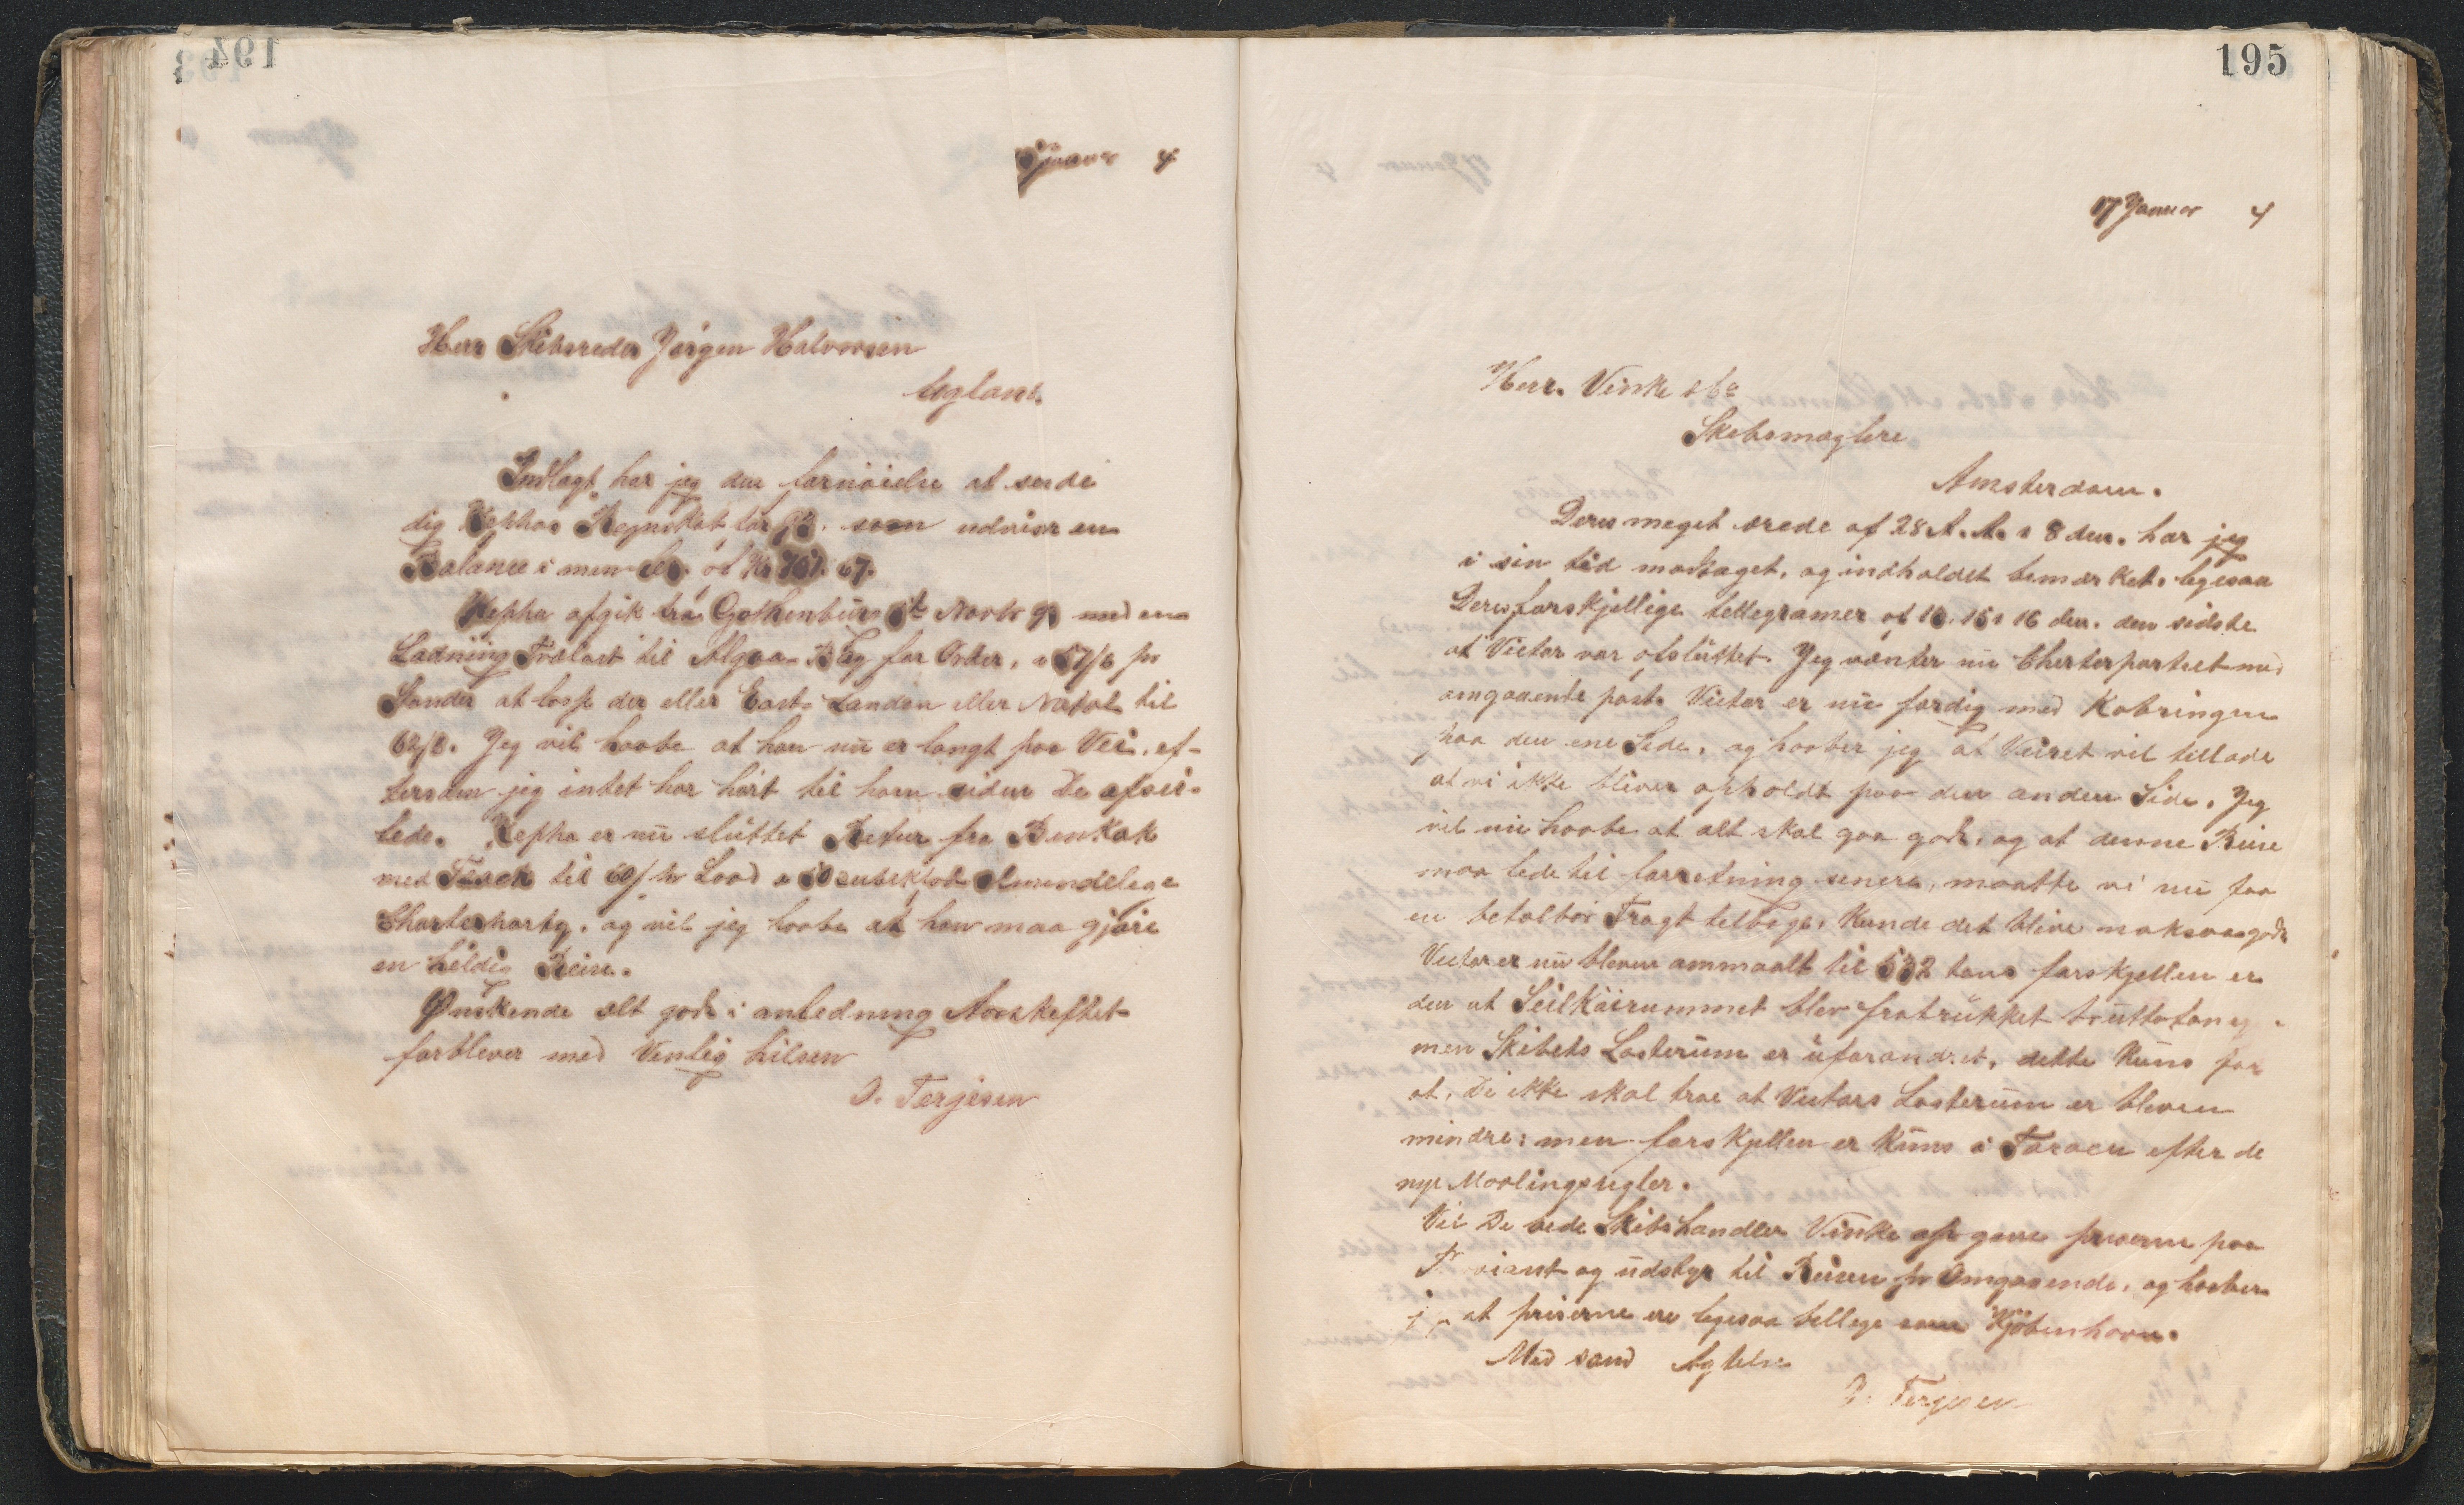 194
Januar 4
Herr Skibsreder Jørgen Halvorsen
Uglans.
Indlagt har jeg den fornöielse at sende
dig Kephas Regnskab for 93. som udviser en
Balance i min af Kr 761. 67.
Kepha afgik fra Gothenburg Novbr 93 med en
Ladning Trælast til Algoa Bay for Order, a 57/6 pr
Stander at losse der eller East London eller Natal til
62/6. Jeg vil haabe at han nu er langt paa Vei, ef-
tersom jeg intet har hört til ham siden De afsei-
lede. Kepha er nu sluttet Retur fra Benkak
med Teack til 60/ pr Load a 50 cubikfod Almindelige
Charterparty, og vil jeg haabe at han maa gjöre
en heldig Reise.
Ønskende alt godt i anledning Aarskeftet
forbliver med Venlig hilsen
O. Terjesen
195
17 Januar 4
Herr. Vinke & Co
Skibsmæglere
Amsterdam.
Deres meget ærede af 28 A. A. & 8 den. har jeg
i sin tid modtaget, og indholdet bemærket. legesaa
Deres forskjellige tellegramer af 10. 15 & 16 den. den sidste
at Victor var afsluttet. Jeg vænter nu Cherterpartiet med
omgaaente post. Victor er nu færdig med Kobringen
paa den ene Side, og haaber jeg at Veiret vil tillade
at vi ikke bliver opholdt paa den anden Side. Jeg
vil nu haabe at alt skal gaa godt, og at denne Reise
maa lede til forretning senere, maatte vi nu faa
en betalbar Fragt telbage, Kunde det blive nok saa godt
Victor er nu bleven ommaalt til 532 tons forskjellen er
den at Seilkäirummet blev fratrükket bruttotong.
men Skibets Lasterüm er üforandret, dette Küns for
at, De ikke skal troe at Victors Lasterüm er bleven
mindre; men forskjellen er Küns i Taraen efter de
nye Maalingsregler.
Vil De bede Skibshandler Vinke opgive priserne paa
Proviant og üdstyr til Reisen pr Omgaaende, og haaber
jeg at priserne ere legesaa bellege som Kjöbenhavn.
Med sand Agtelse
O. Terjesen